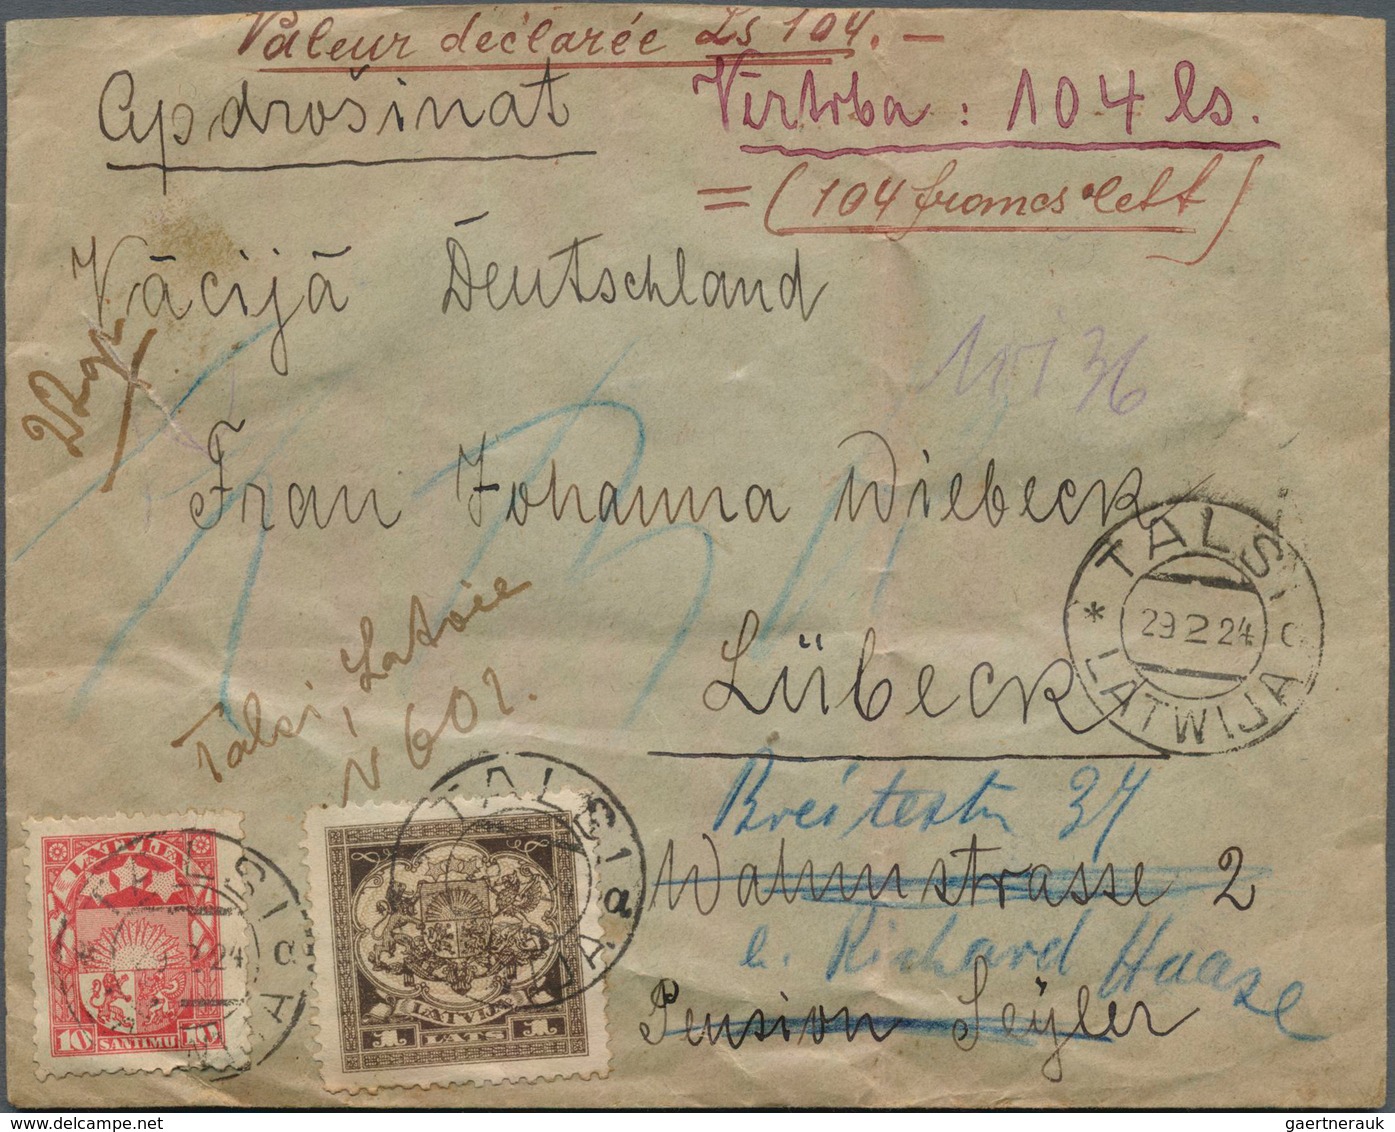 Valeur déclarée Ls 104.—
Apdrošinat Vērtība: 104 ls.
= (104 francs lett)
Vācijā Deutschland
Frau Johanna Wiebeck
Lübeck
TALSI
* 29 2 24 c
LATWIJA
Talsi, Latvie
N 602.
Breitestr 37
Wahmstrasse 2
b. Richard Haase
Pension Seÿler
LATVIJA
10 SANTIMU 10
TALSI a
LATVIJA
1 LATS 1
gaertnerauk